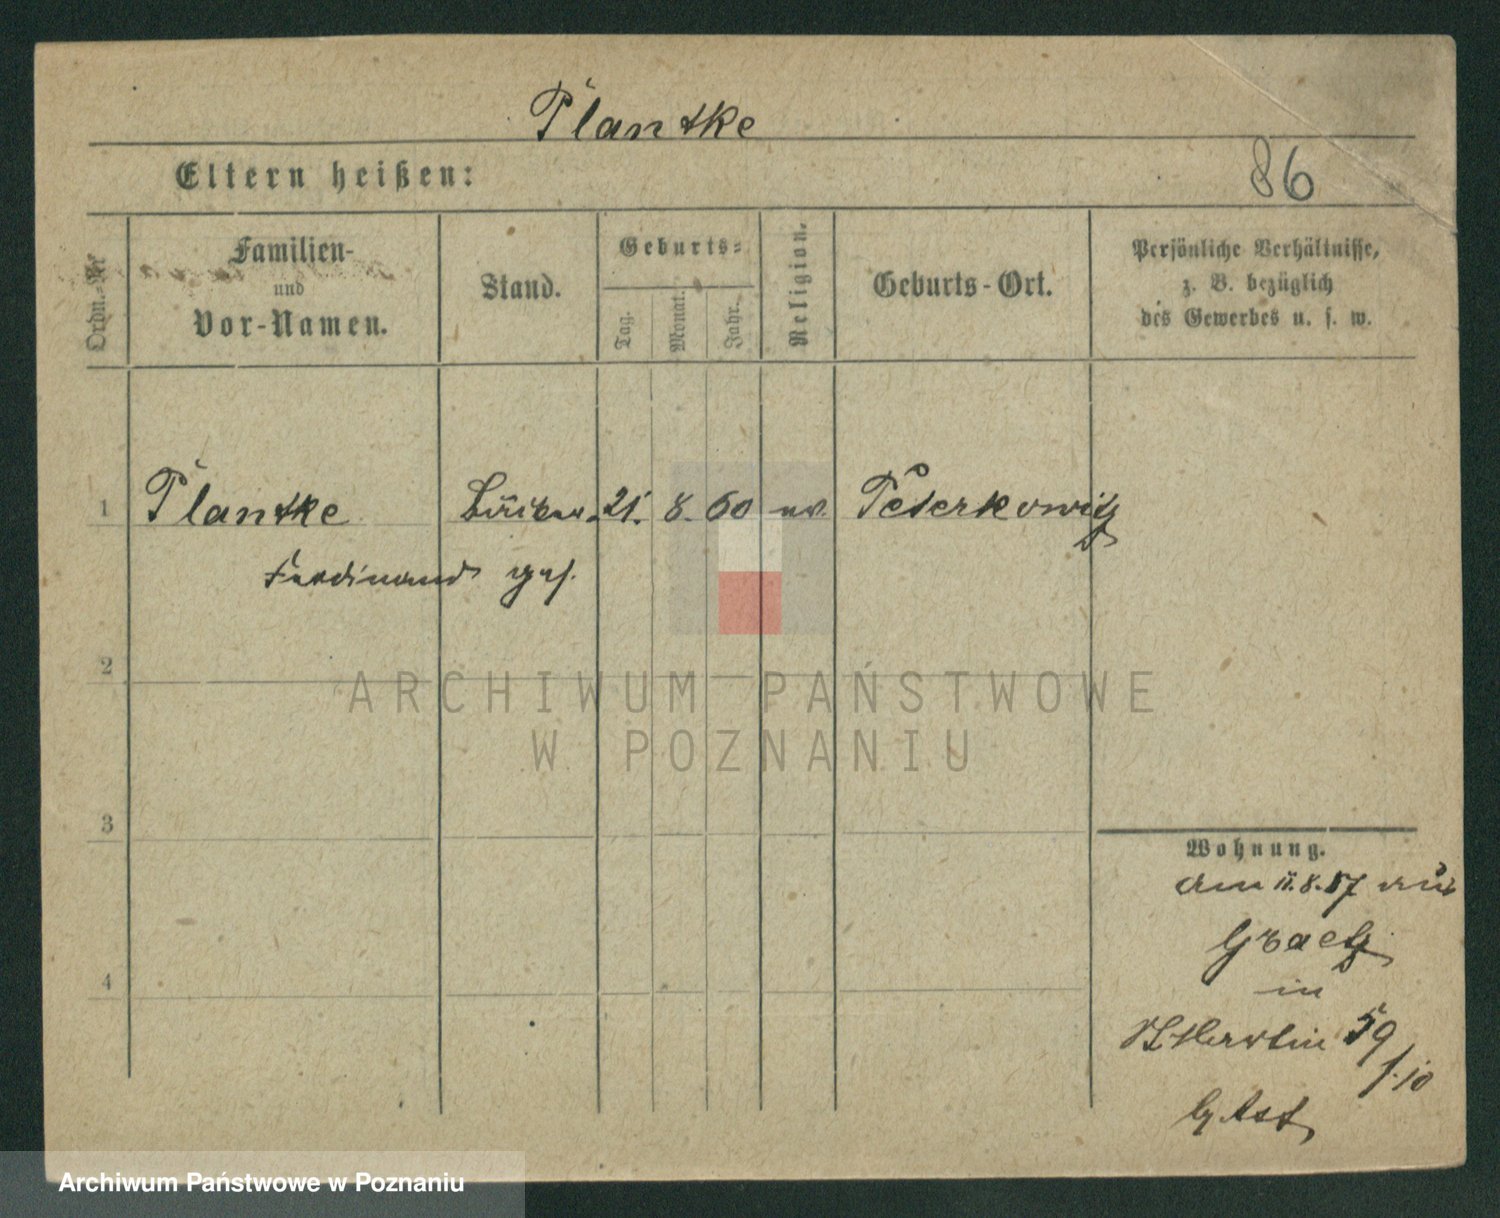 Plantke
Eltern heißen:
86
Ordn.-Nr
Familien-
und
Vor-Namen.
Stand.
Geburts-
Tag.
Monat.
Jahr.
Religion.
Geburts-Ort.
Persönliche Verhältnisse,
z. B. bezüglich
des Gewerbes u. s. w.
1 Plantke 21. 8. 60 ev. Peterkowitz
Ferdinand
2
3
4
Wohnung.
am 11.8.87 aus
Graetz
in
St Martin 59
ARCHIWUM PAŃSTWOWE
W POZNANIU
Archiwum Państwowe w Poznaniu